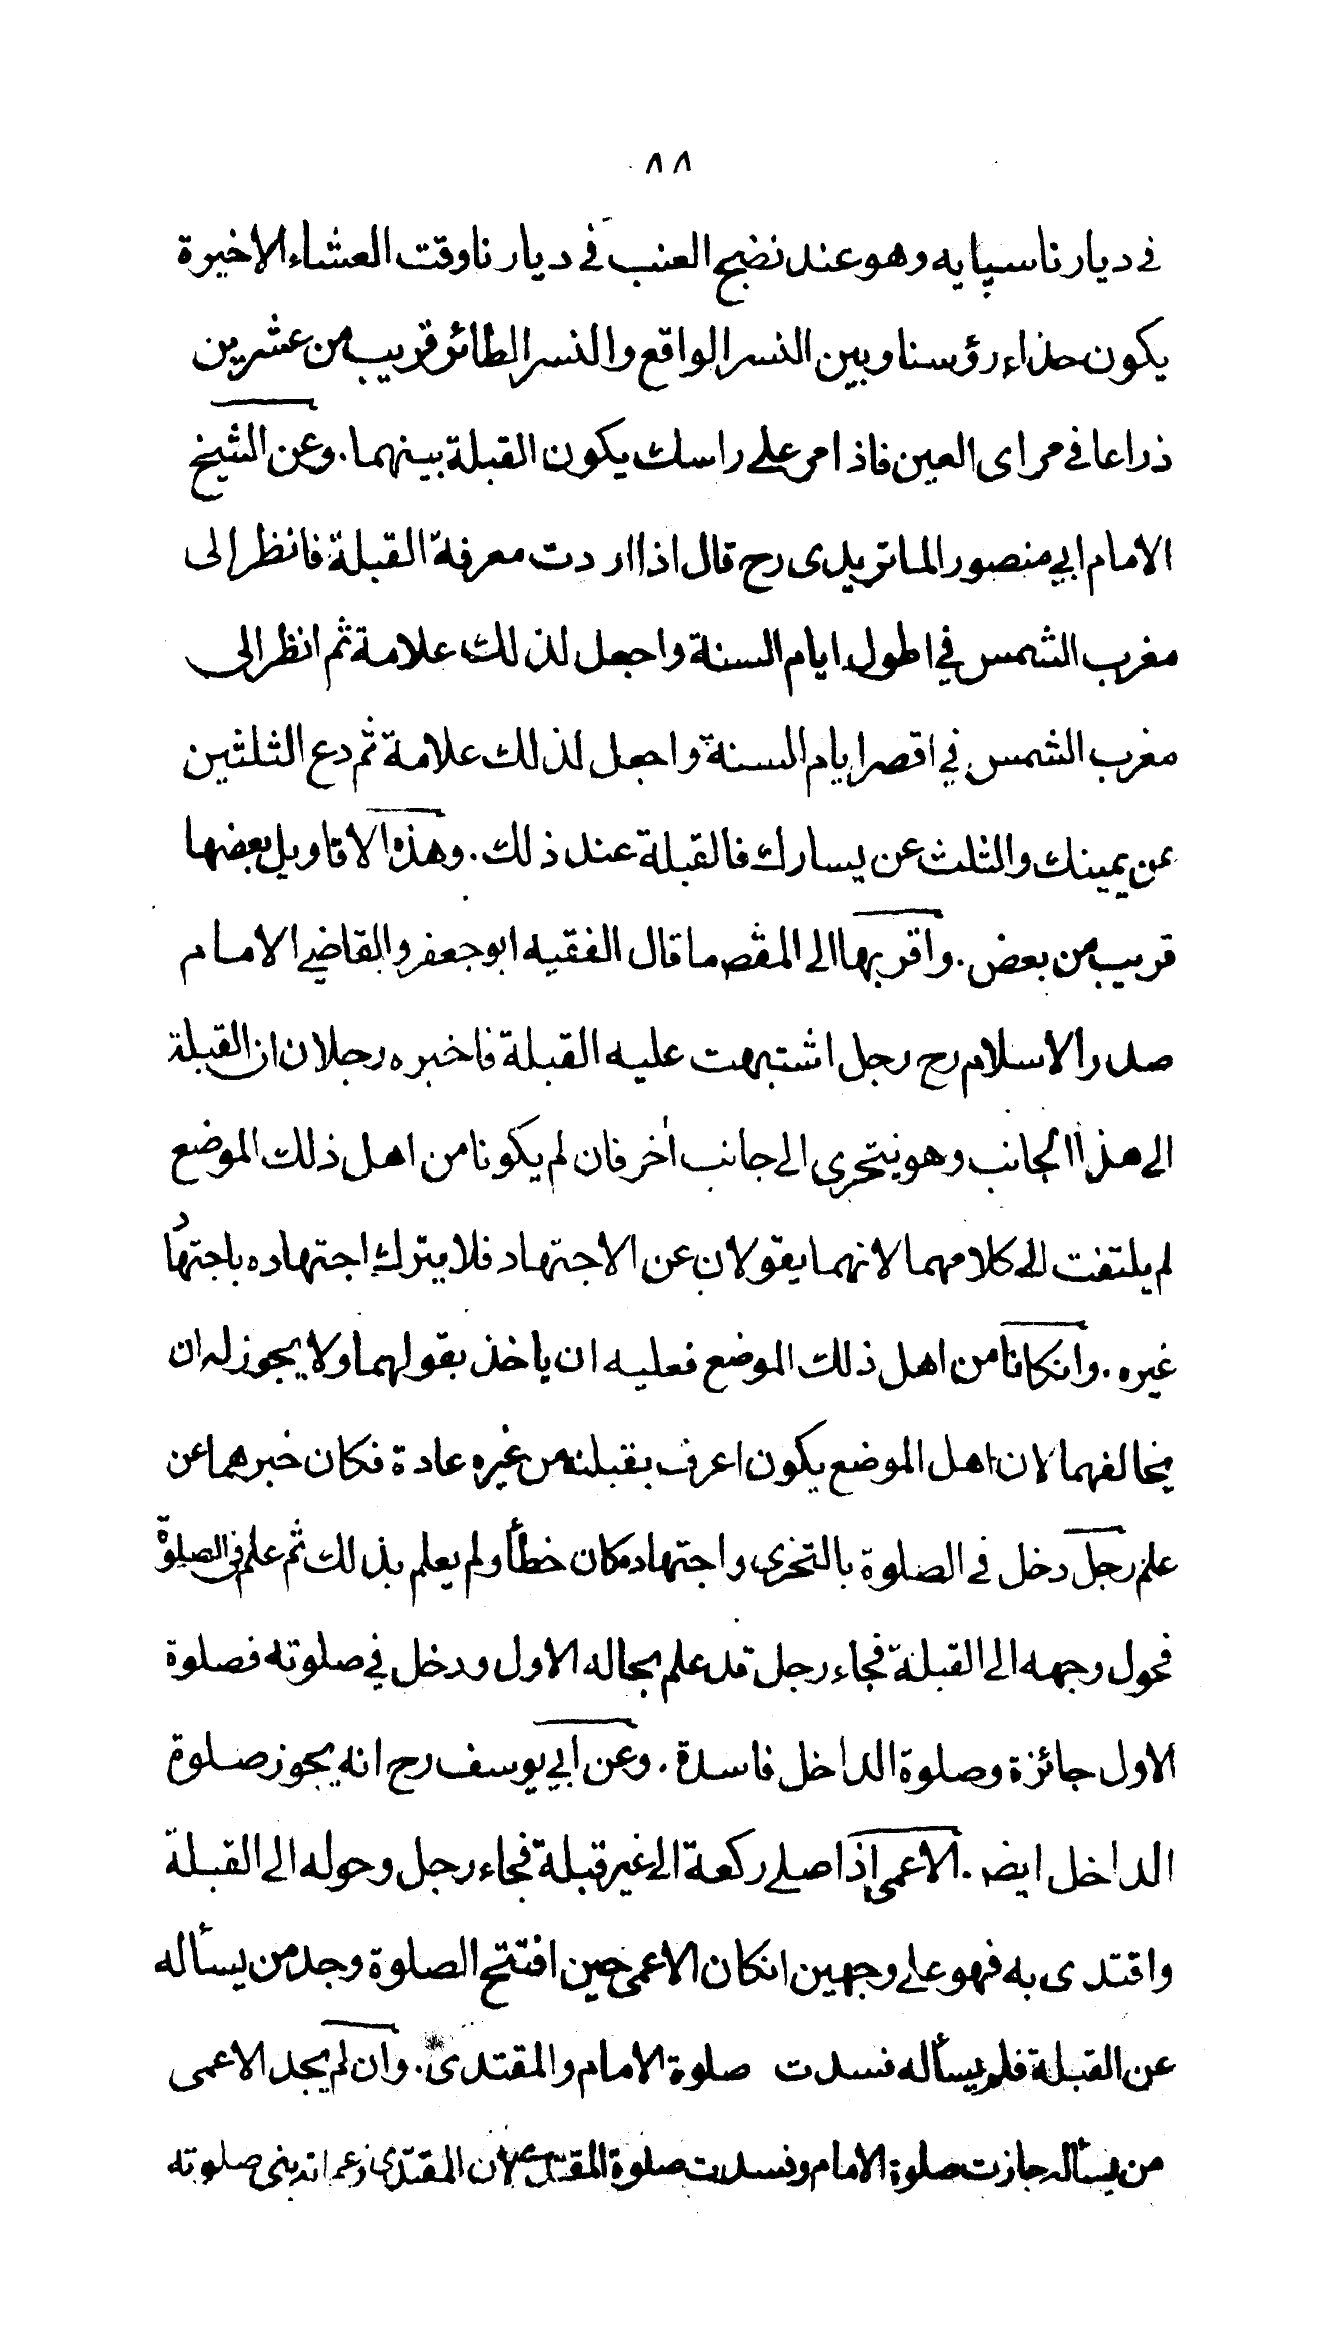 ٨٨
في ديارنا سپايه وهو عند نضج العنب في ديارنا وقت العشاء الاخيرة
يكون حذاء رؤسنا وبين النسر الواقع والنسر الطائر قريب من عشرين
ذراعا في مراى العين فاذا مر على راسك يكون القبلة بينهما . وعن الشيخ
الامام ابي منصور الماتريدى رح قال اذا اردت معرفة القبلة فانظر الى
مغرب الشمس في اطول ايام السنة واجعل لذلك علامة ثم انظر الى
مغرب الشمس في اقصر ايام السنة واجعل لذلك علامة ثم دع الثلثين
عن يمينك والثلث عن يسارك فالقبلة عند ذلك . وهذه الاقاويل بعضها
قريب من بعض . واقربها الى المقص ما قال الفقيه ابو جعفر والقاضي الامام
صدر الاسلام رح رجل اشتبهت عليه القبلة فاخبره رجلان ان القبلة
الى هذا الجانب وهو يتحرى الى جانب أخر فان لم يكونا من اهل ذلك الموضع
لم يلتفت الى كلامهما لانهما يقولان عن الاجتهاد فلا يترك اجتهاده باجتهاد
غيره . وانكانا من اهل ذلك الموضع فعليه ان ياخذ بقولهما ولا يجوز له ان
يخالفهما لان اهل الموضع يكون اعرف بقبلته من غيره عادة فكان خبرهما عن
علم رجل دخل في الصلوة بالتحرى واجتهاده كان خطأ ولم يعلم بذلك ثم علم في الصلوة
فحول وجهه الى القبلة فجاء رجل قد علم بحاله الاول ودخل في صلوته فصلوة
الاول جائزة وصلوة الداخل فاسدة . وعن ابي يوسف رح انه يجوز صلوة
الداخل ايضـ . الاعمى اذا صلى ركعة الى غير قبلة فجاء رجل وحوله الى القبلة
واقتدى به فهو على وجهين انكان الاعمى حين افتتح الصلوة وجد من يسأله
عن القبلة فلم يسأله فسدت صلوة الامام والمقتدى . وان لم يجد الاعمى
من يسأله جازت صلوة الامام وفسدت صلوة المقتدى لان المقتدى زعم انه بنى صلوته